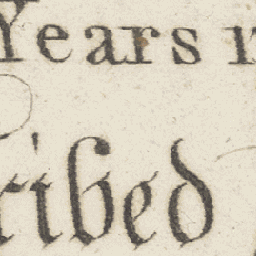 Years
ribed